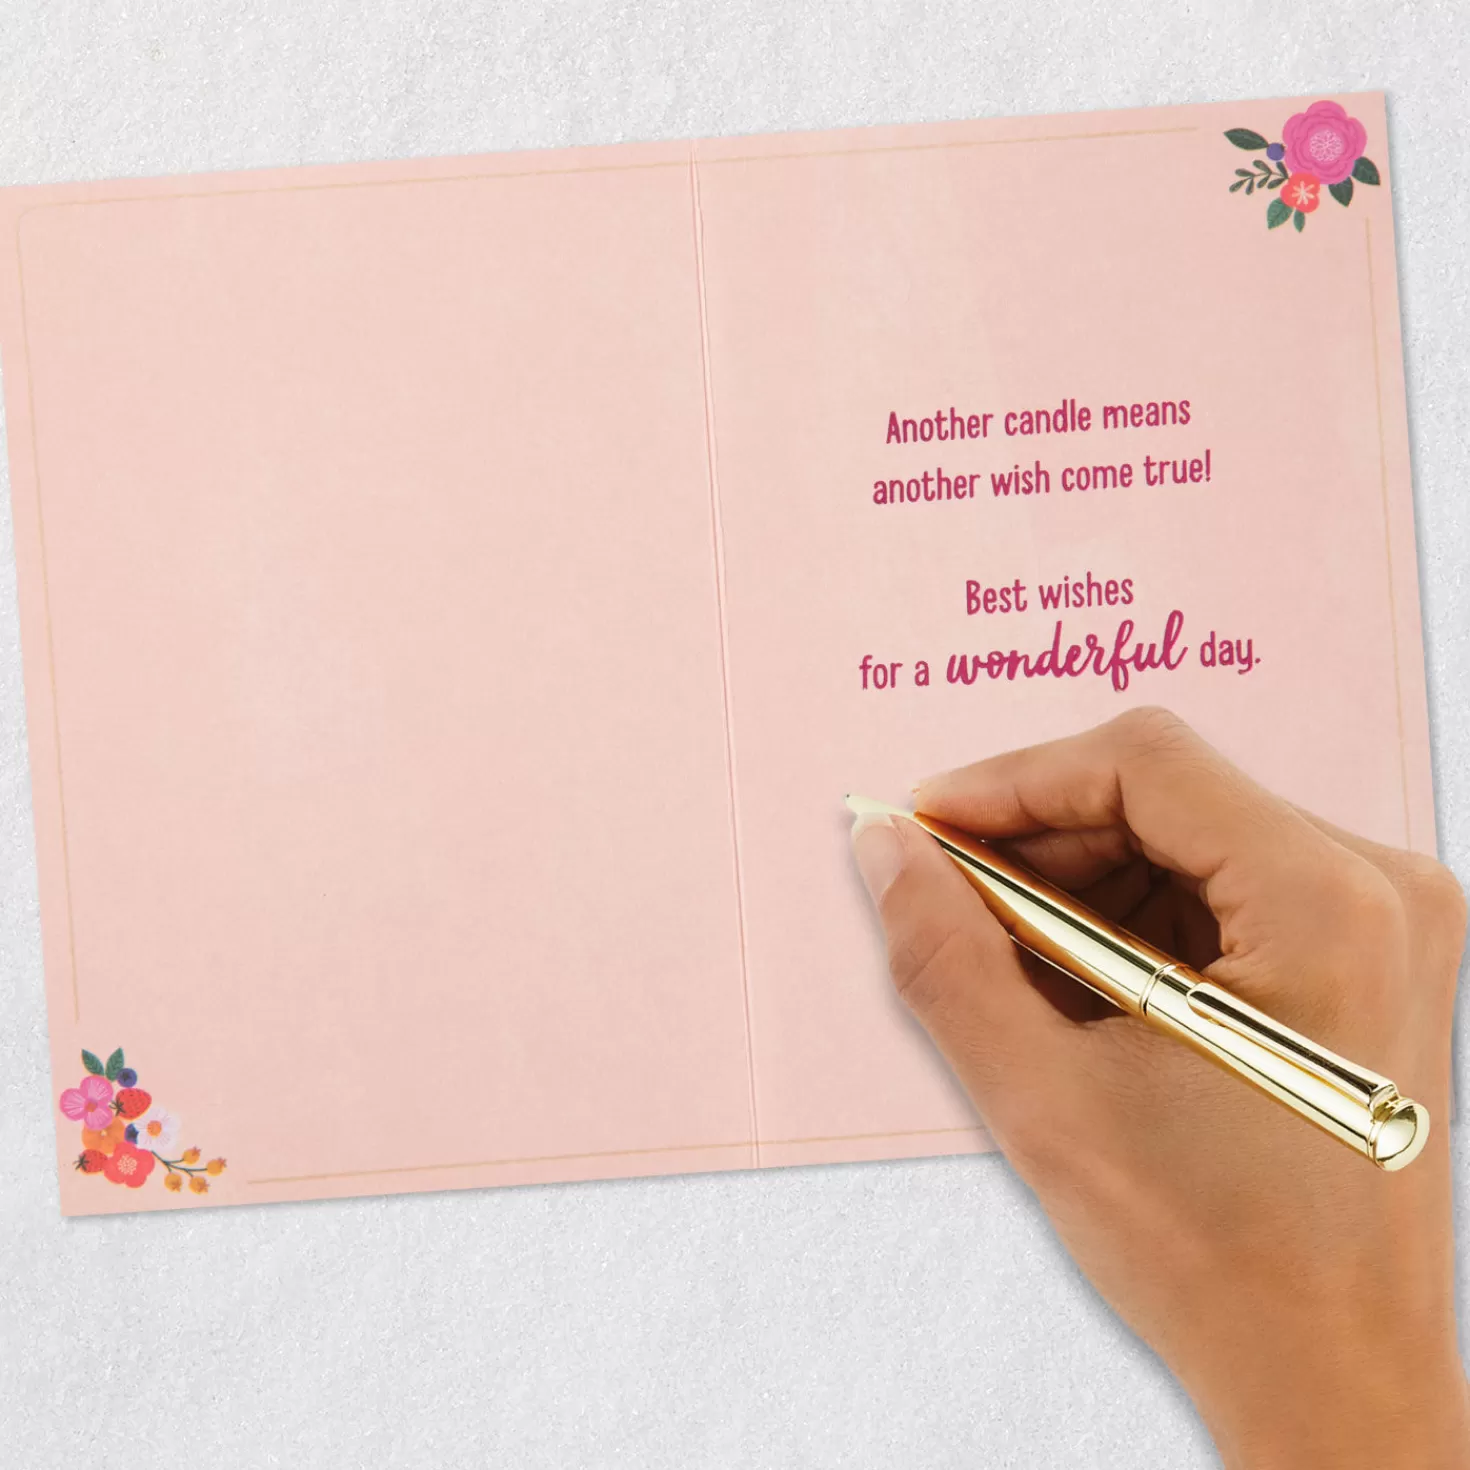 Another candle means
another wish come true!
Best wishes
for a wonderful day.